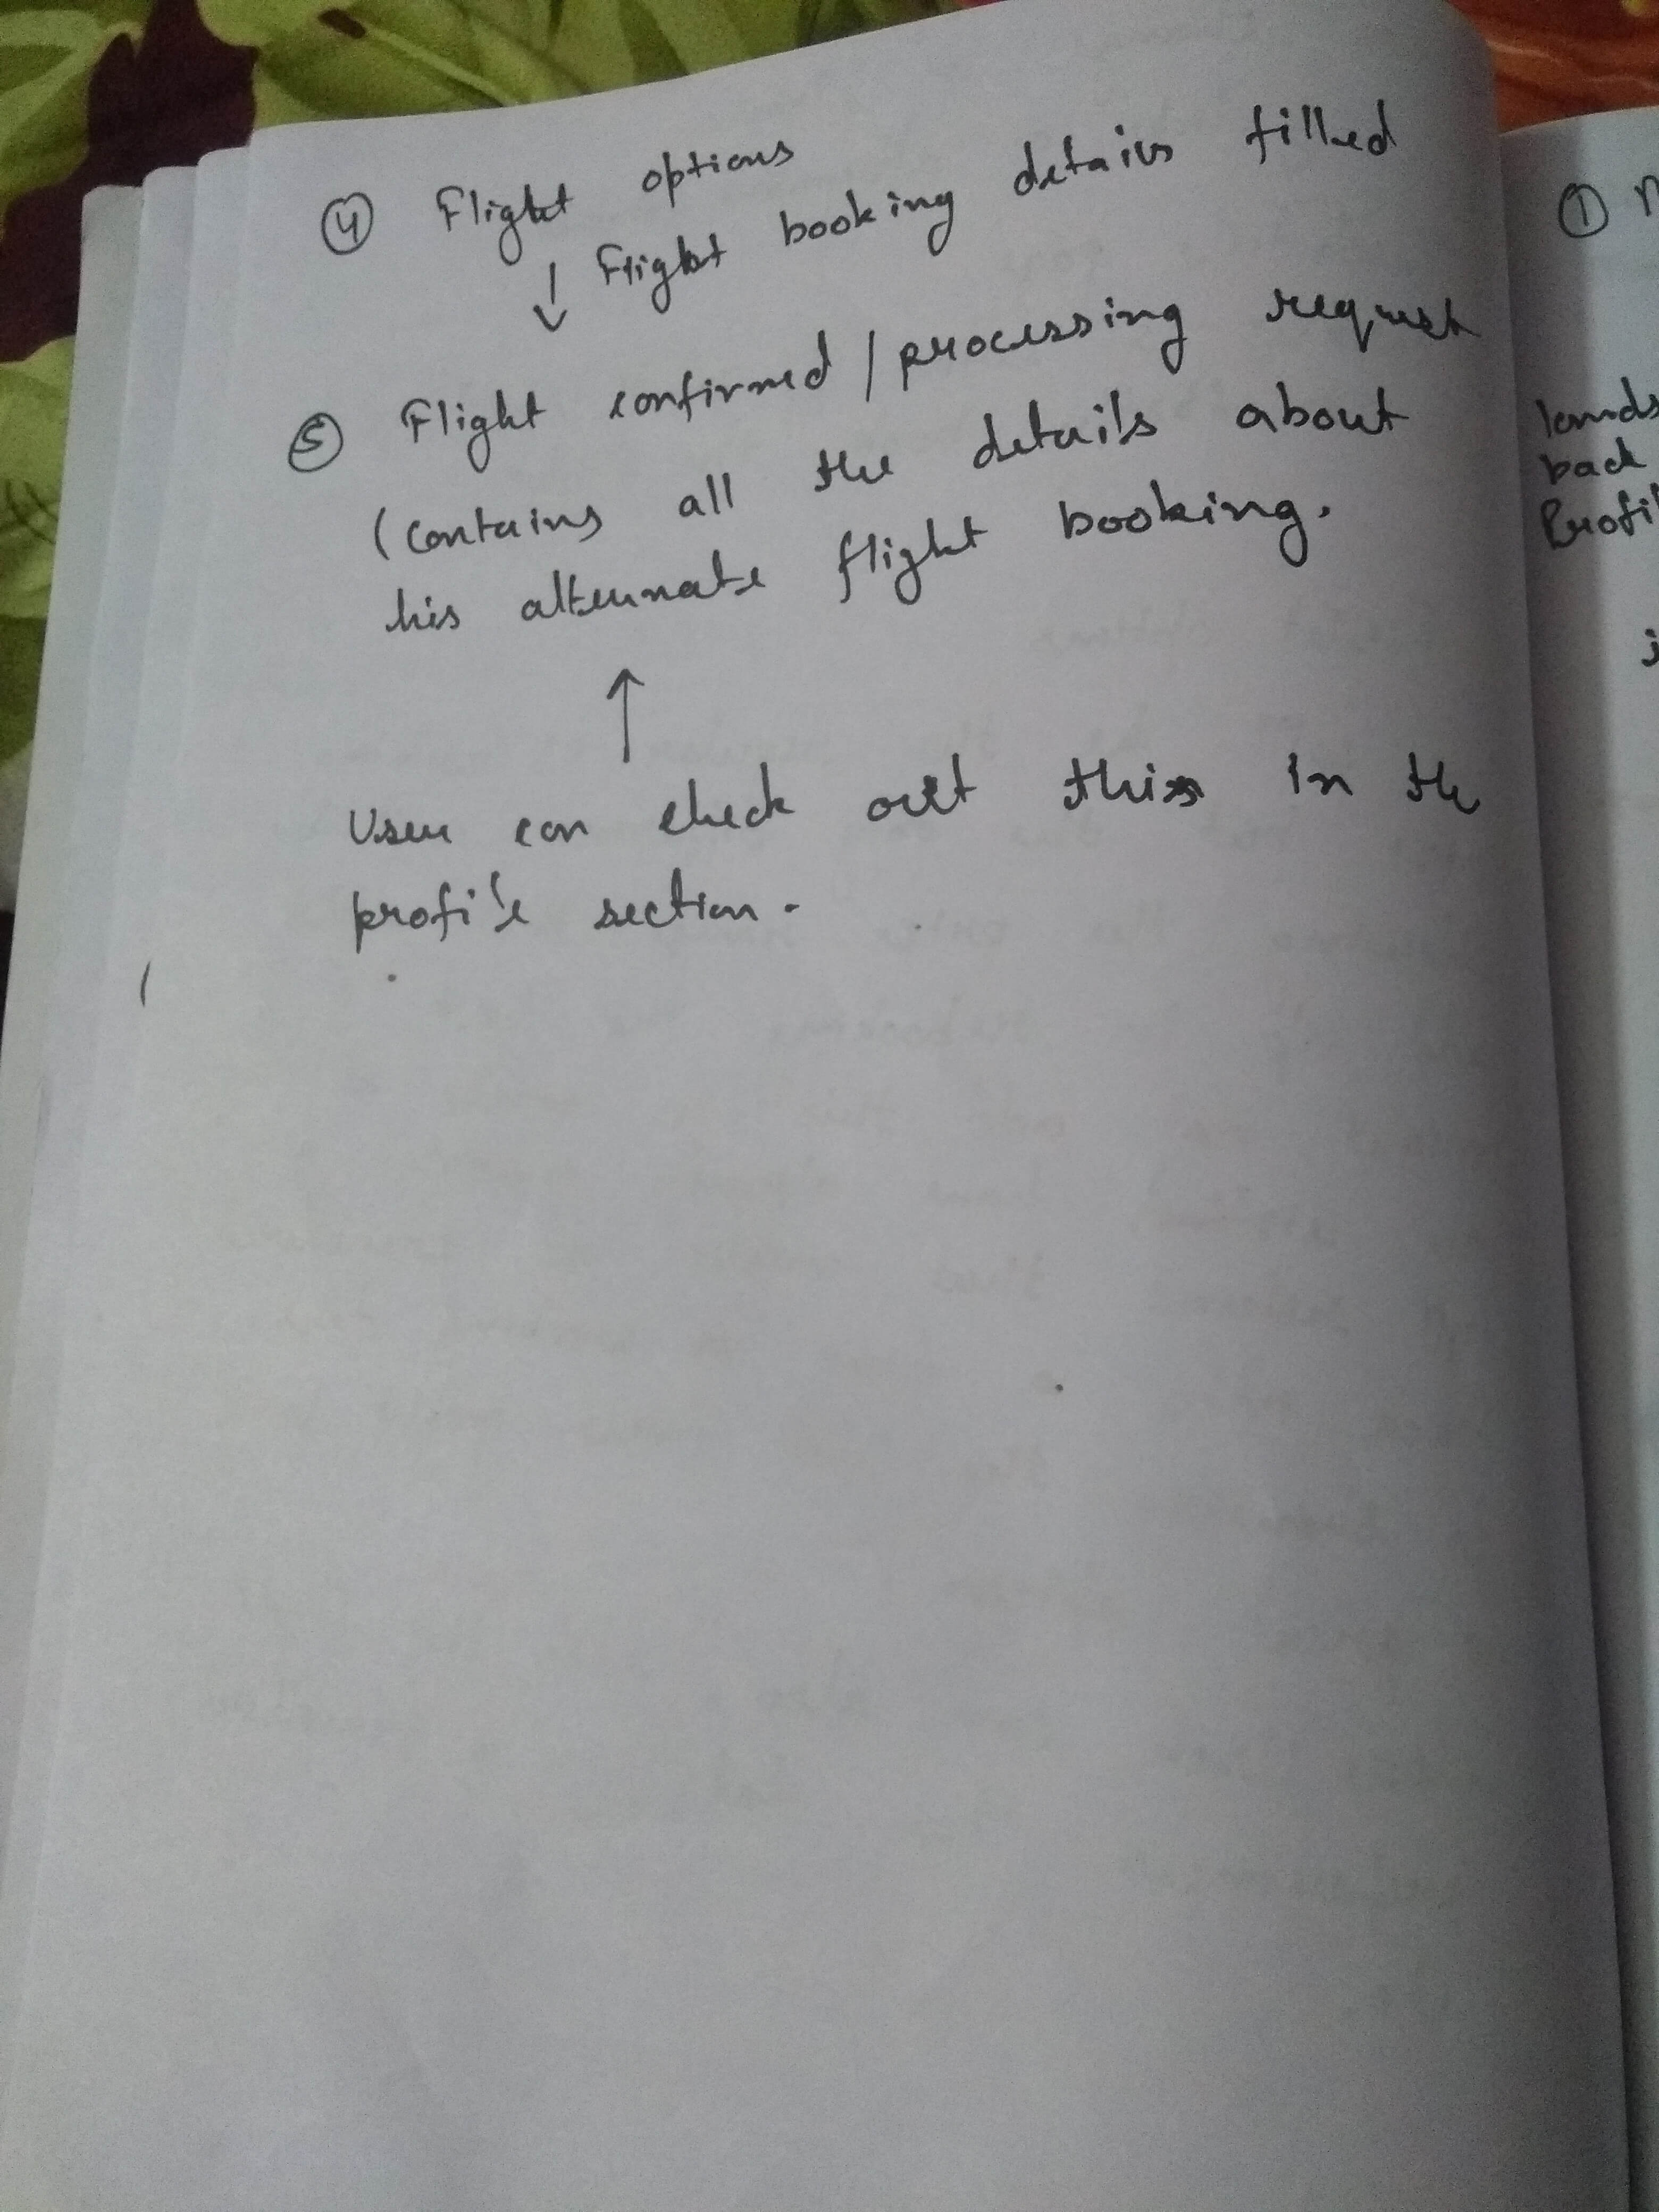 ④ Flight options
↓ Flight booking details filled
⑤ Flight confirmed / processing request
(contains all the details about
his alternate flight booking.
↑
User can check out this in the
profile section.
①
lands
back